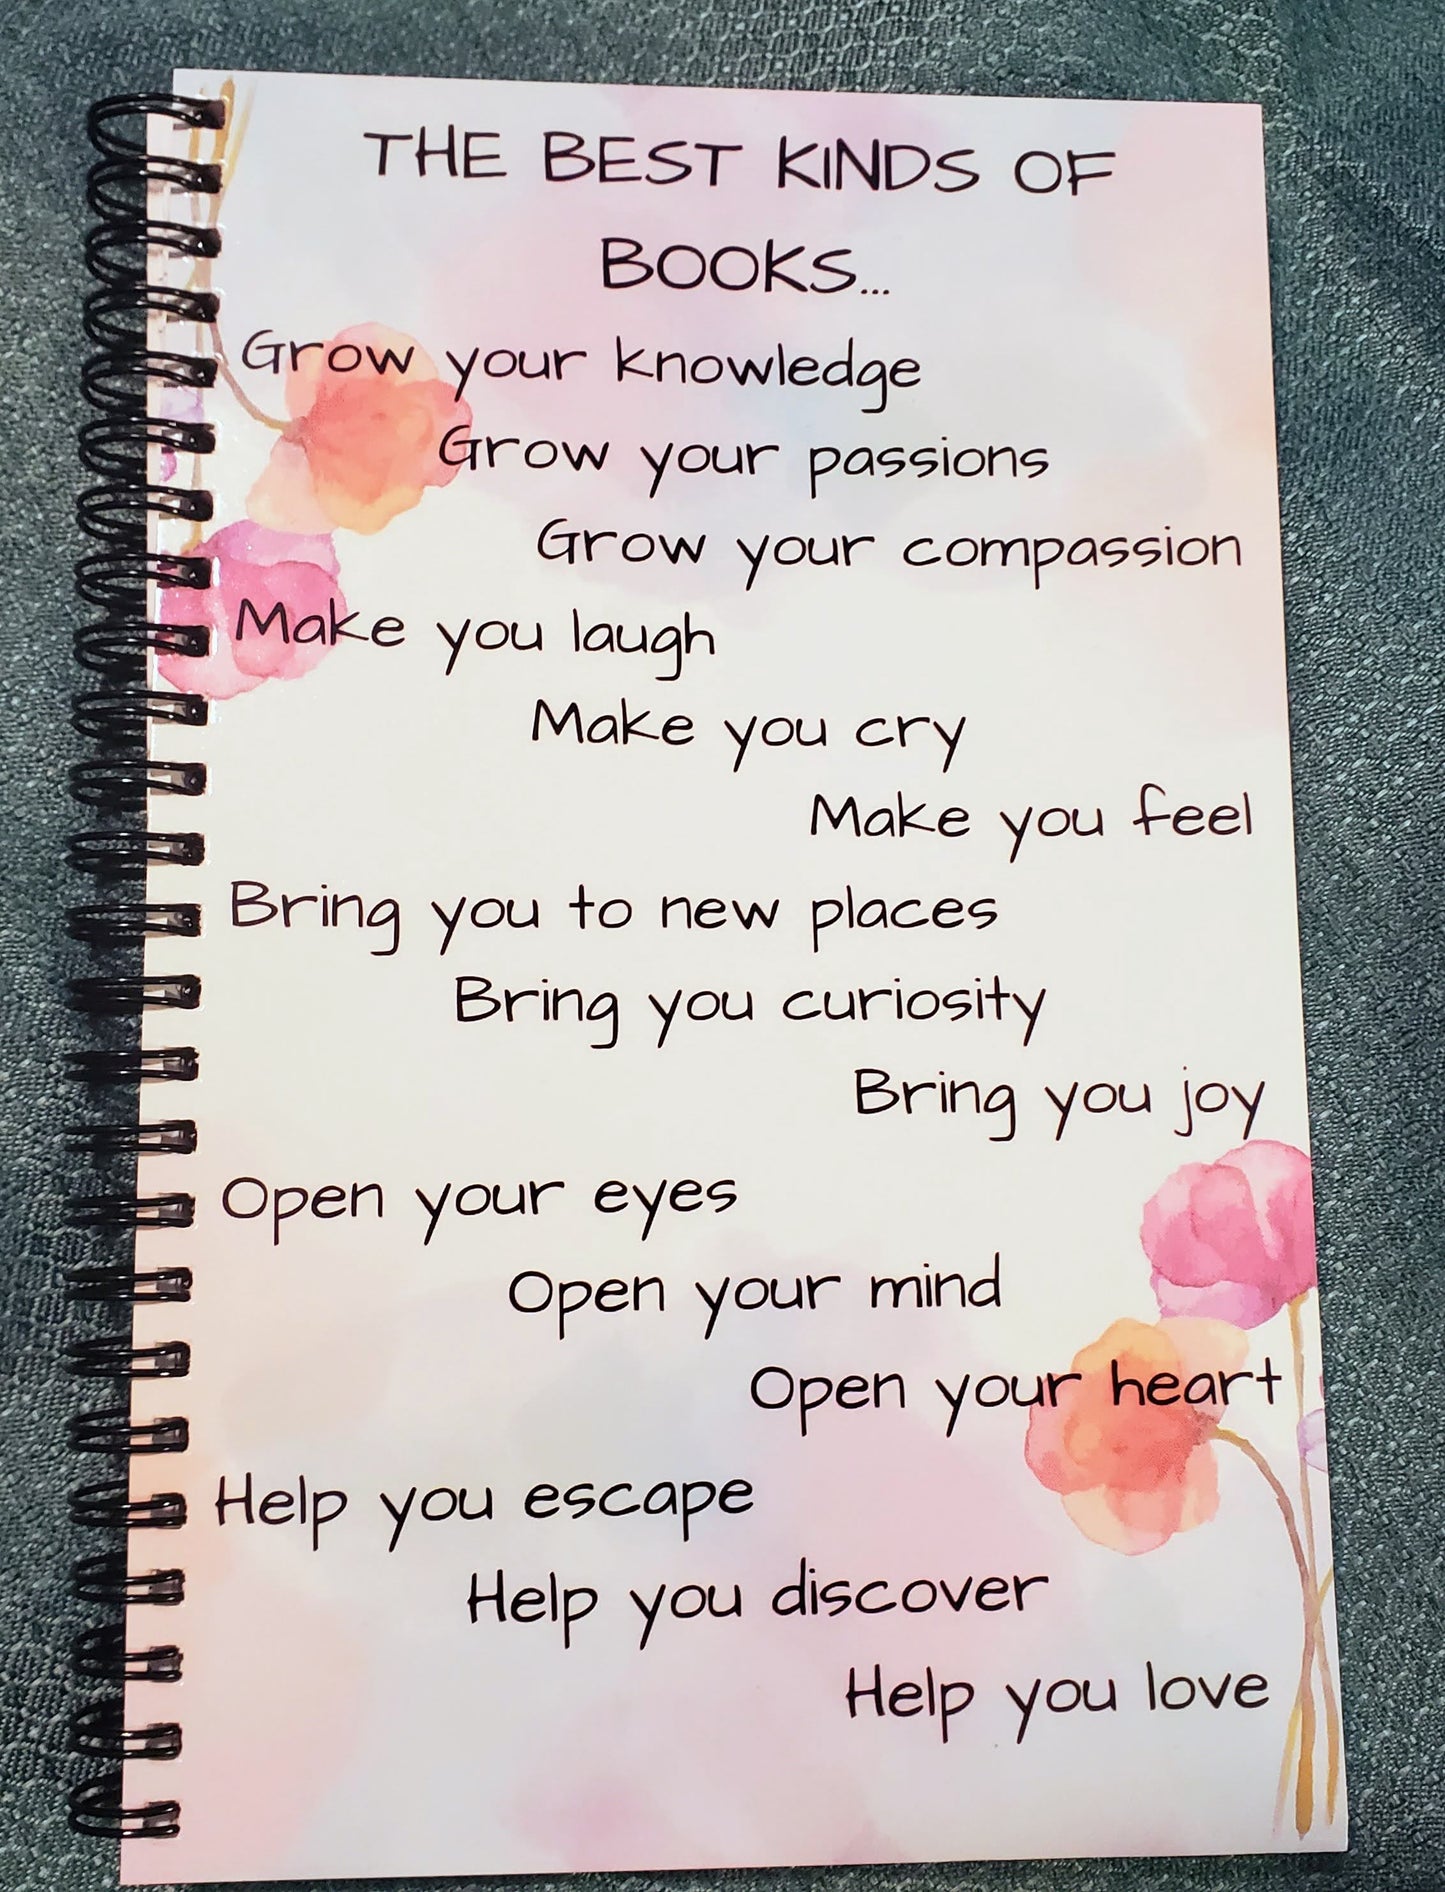 THE BEST KINDS OF
BOOKS...
Grow your knowledge
Grow your passions
Grow your compassion
Make you laugh
Make you cry
Make you feel
Bring you to new places
Bring you curiosity
Bring you joy
Open your eyes
Open your mind
Open your heart
Help you escape
Help you discover
Help you love